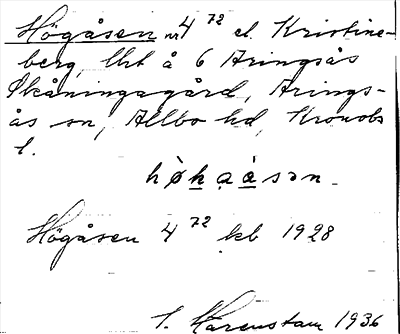 Högåsen nr 4 72 el. Kristine-
berg, lht å 6 Aringsås
Skåningagård, Arings-
ås sn, Allbo hd, Kronobs
l.
hö̀kaåsən
Högåsen 4 72 kb 1928
Karenstam 1936